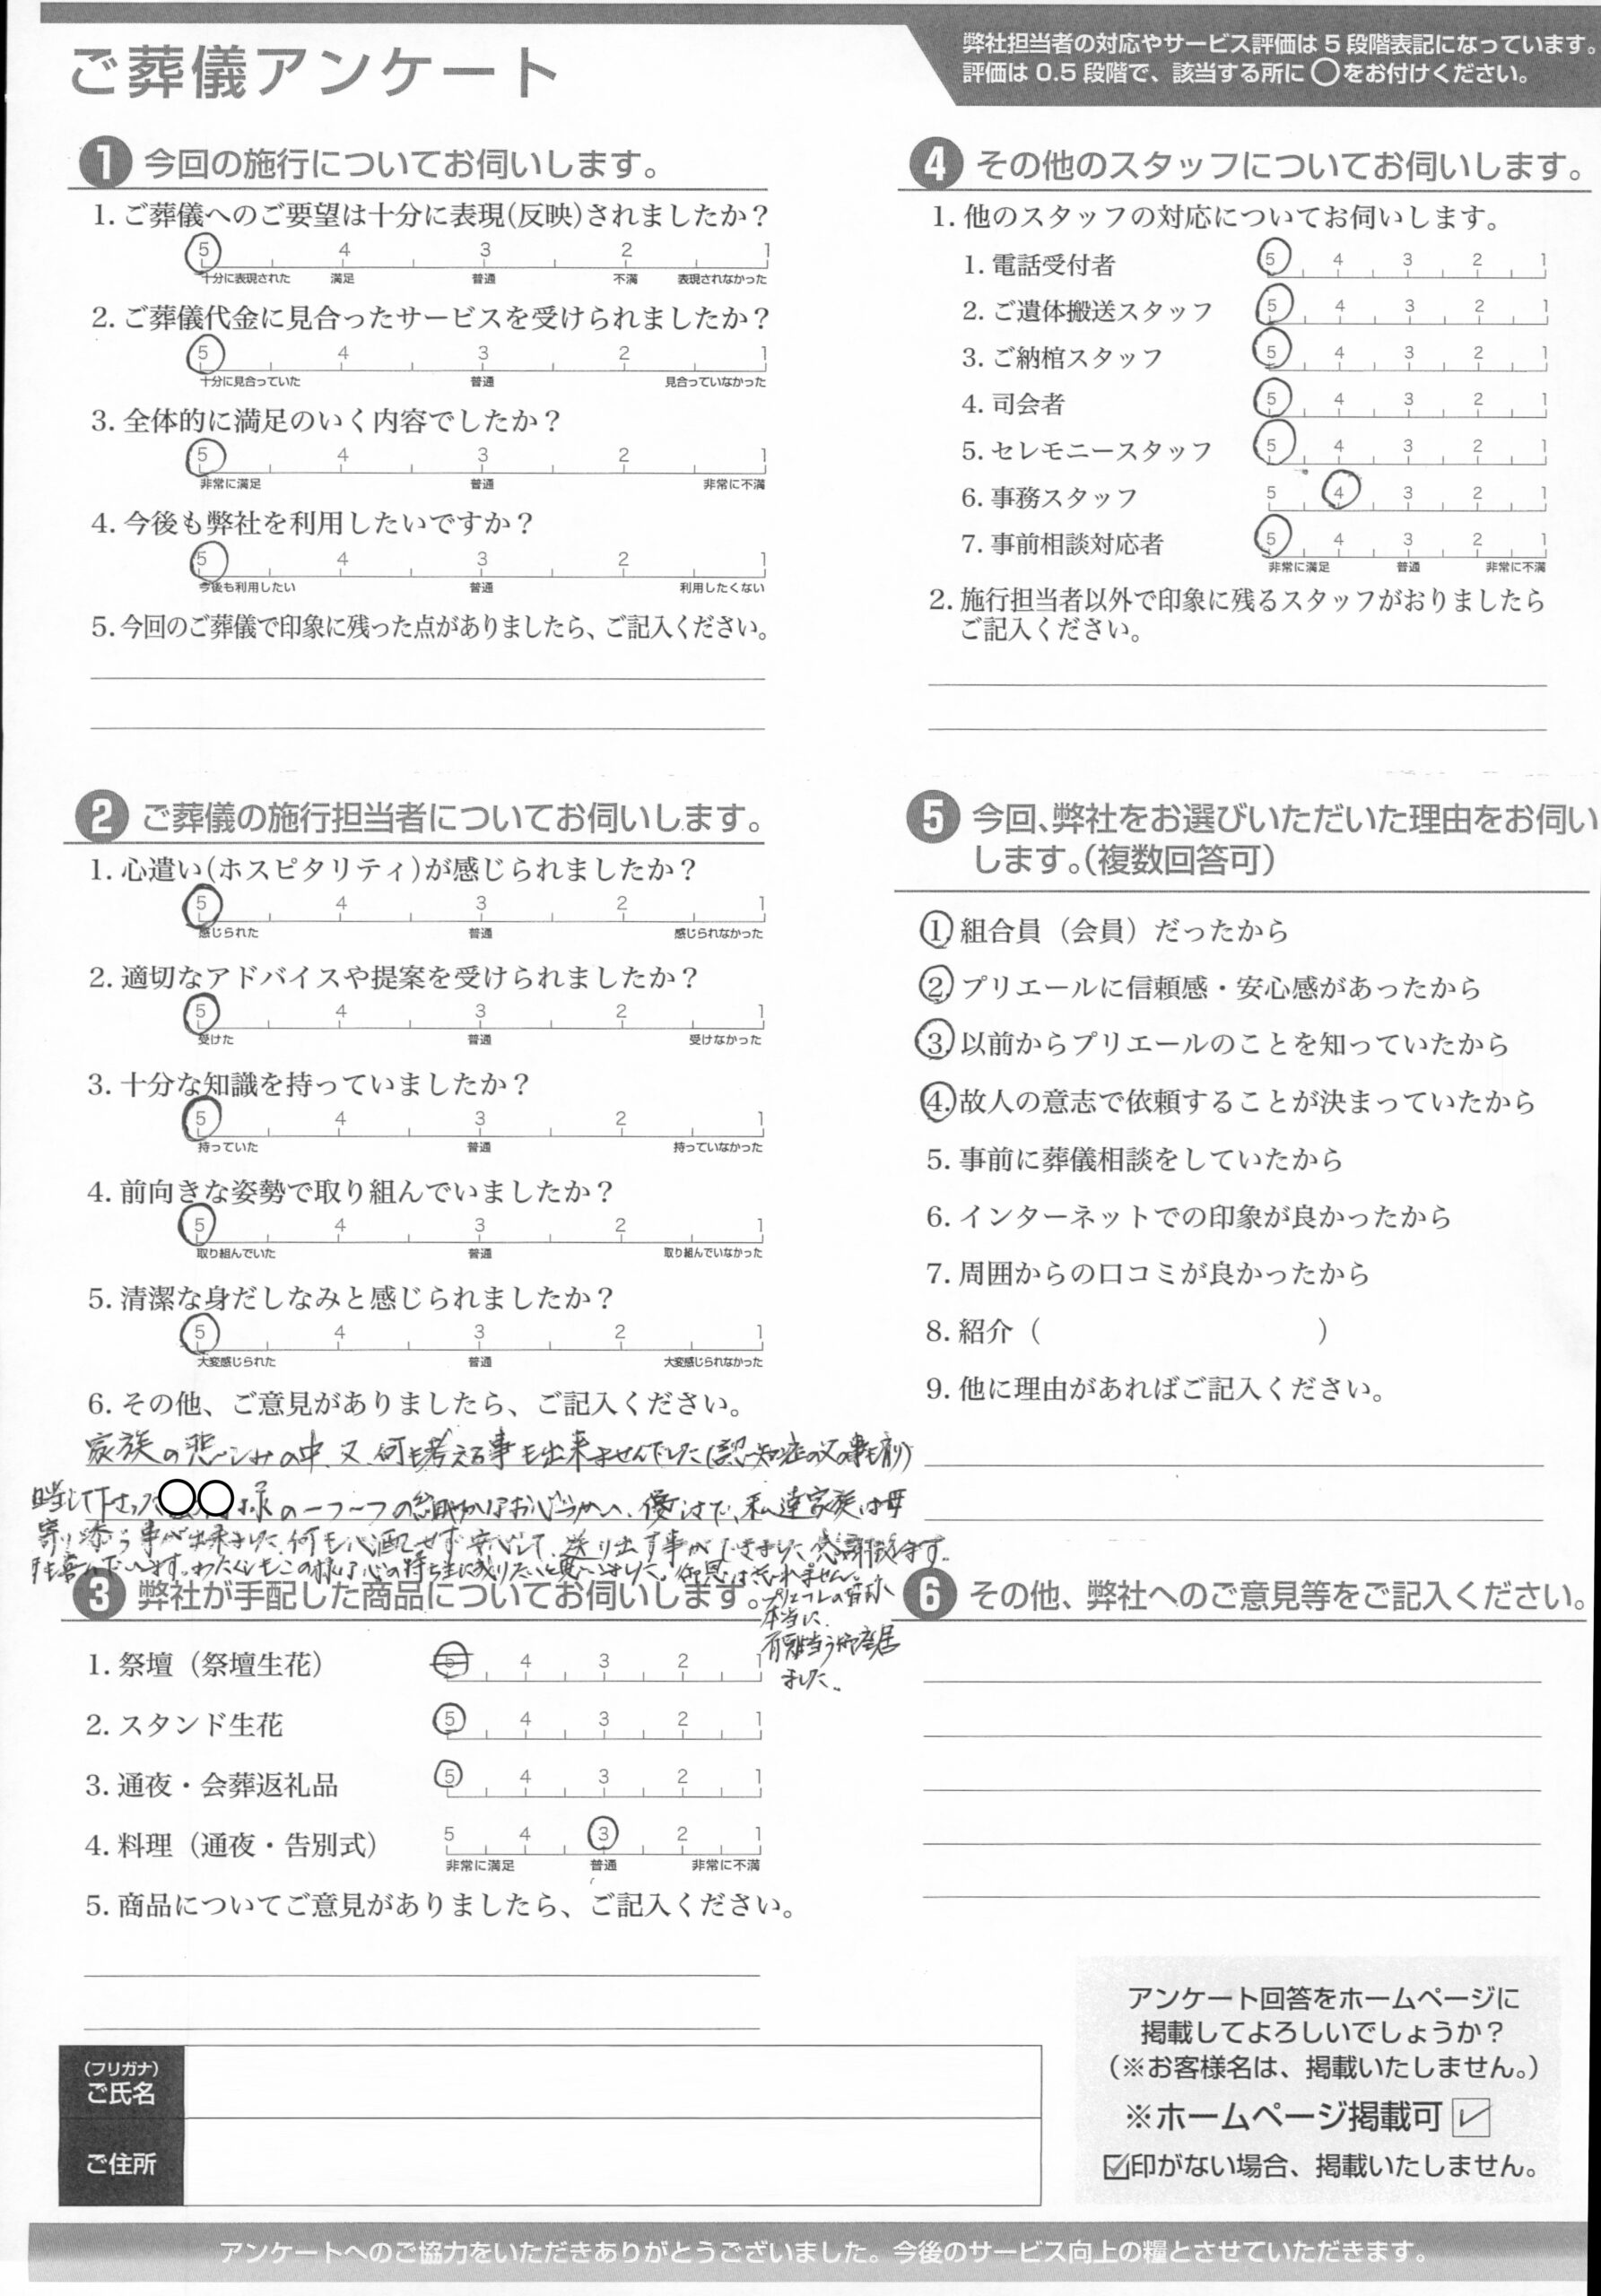 ご葬儀アンケート
弊社担当者の対応やサービス評価は 5 段階表記になっています。
評価は 0.5 段階で、該当する所に◯をお付けください。
1 今回の施行についてお伺いします。
1. ご葬儀へのご要望は十分に表現(反映)されましたか？
5 4 3 2 1
十分に表現された 満足 普通 不満 表現されなかった
2. ご葬儀代金に見合ったサービスを受けられましたか？
5 4 3 2 1
十分に見合っていた 普通 見合っていなかった
3. 全体的に満足のいく内容でしたか？
5 4 3 2 1
非常に満足 普通 非常に不満
4. 今後も弊社を利用したいですか？
5 4 3 2 1
今後も利用したい 普通 利用したくない
5. 今回のご葬儀で印象に残った点がありましたら、ご記入ください。
2 ご葬儀の施行担当者についてお伺いします。
1. 心遣い(ホスピタリティ)が感じられましたか？
5 4 3 2 1
感じられた 普通 感じられなかった
2. 適切なアドバイスや提案を受けられましたか？
5 4 3 2 1
受けた 普通 受けなかった
3. 十分な知識を持っていましたか？
5 4 3 2 1
持っていた 普通 持っていなかった
4. 前向きな姿勢で取り組んでいましたか？
5 4 3 2 1
取り組んでいた 普通 取り組んでいなかった
5. 清潔な身だしなみと感じられましたか？
5 4 3 2 1
大変感じられた 普通 大変感じられなかった
6. その他、ご意見がありましたら、ご記入ください。
家族の悲しみの中、又、何も考える事も出来ませんでした(認知症の父の事も有り)
下さった◯◯様の一つ一つの細やかなお心づかい、優しさで、私達家族は母
寄り添う事が出来ました。何も心配せず安心して、送り出す事ができました。感謝致します。
喜んでいます。わたくしもこの様な心の持ち主に成りたいと思いました。御恩は忘れません。
プリエールの皆さん
本当に、
有難う御座居
ました。
3 弊社が手配した商品についてお伺いします。
1. 祭壇（祭壇生花） 5 4 3 2 1
2. スタンド生花 5 4 3 2 1
3. 通夜・会葬返礼品 5 4 3 2 1
4. 料理（通夜・告別式） 5 4 3 2 1
非常に満足 普通 非常に不満
5. 商品についてご意見がありましたら、ご記入ください。
(フリガナ)
ご氏名
ご住所
4 その他のスタッフについてお伺いします。
1. 他のスタッフの対応についてお伺いします。
1. 電話受付者 5 4 3 2 1
2. ご遺体搬送スタッフ 5 4 3 2 1
3. ご納棺スタッフ 5 4 3 2 1
4. 司会者 5 4 3 2 1
5. セレモニースタッフ 5 4 3 2 1
6. 事務スタッフ 5 4 3 2 1
7. 事前相談対応者 5 4 3 2 1
非常に満足 普通 非常に不満
2. 施行担当者以外で印象に残るスタッフがおりましたら
ご記入ください。
5 今回、弊社をお選びいただいた理由をお伺い
します。(複数回答可)
1. 組合員（会員）だったから
2. プリエールに信頼感・安心感があったから
3. 以前からプリエールのことを知っていたから
4. 故人の意志で依頼することが決まっていたから
5. 事前に葬儀相談をしていたから
6. インターネットでの印象が良かったから
7. 周囲からの口コミが良かったから
8. 紹介（ ）
9. 他に理由があればご記入ください。
6 その他、弊社へのご意見等をご記入ください。
アンケート回答をホームページに
掲載してよろしいでしょうか？
(※お客様名は、掲載いたしません。)
※ホームページ掲載可 ☑
☑印がない場合、掲載いたしません。
アンケートへのご協力をいただきありがとうございました。今後のサービス向上の糧とさせていただきます。